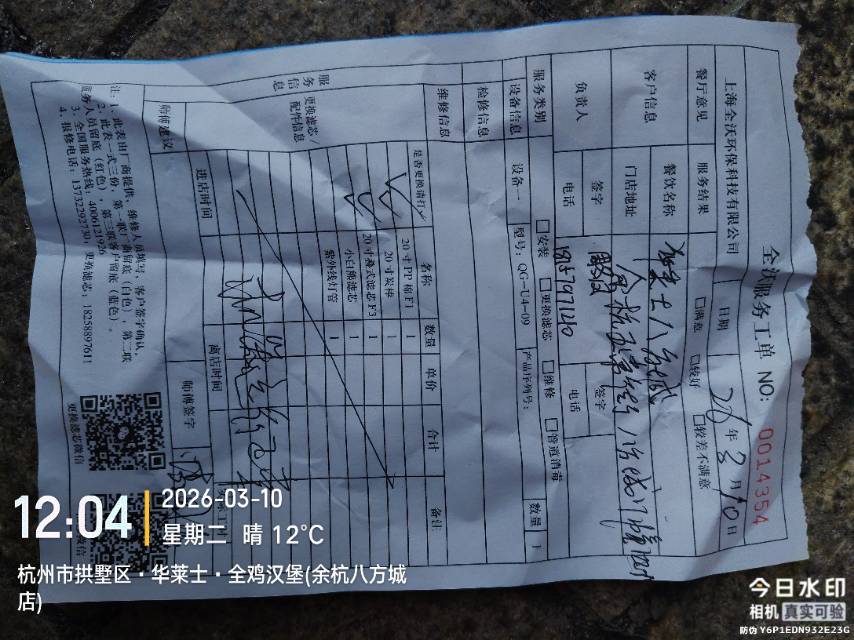 全沃服务工单 NO: 0014354
上海全沃环保科技有限公司 日期 26年3月10日
餐厅意见 服务结果 □满意 □较好 □较差不满意
客户信息 餐饮名称 华莱士八方城
门店地址
负责人 签字 签字
电话 电话
服务类别 □安装 □更换滤芯 □维修 □管道消毒
设备信息 设备一 型号: QG-U4-09 产品序列号: 数量 1
检修信息
维修信息
服务信息
更换滤芯/配件信息
是否更换请打√ 名称 数量 单价 合计 备注
√ 20寸PP棉F1 1
√ 20寸炭棒 1
√ 20寸叠式滤芯F3 1
小白熊滤芯 1
紫外线灯管 1
师傅建议
进店时间 离店时间 师傅签字
注: 1、此表由厂商提供, 维修人员填写, 客户签字确认。
2、此表一式三份: 第一联厂商留底(白色), 第二联
服务人员留底(红色), 第三联客户留底(蓝色)。
3、全国服务热线: 4006121926
4、报修电话: 13732292730, 更换滤芯: 18258897611
更换滤芯微信
12:04
2026-03-10
星期二 晴 12°C
杭州市拱墅区·华莱士·全鸡汉堡(余杭八方城
店)
今日水印
相机 真实可验
防伪 Y6P1EDN932E23G